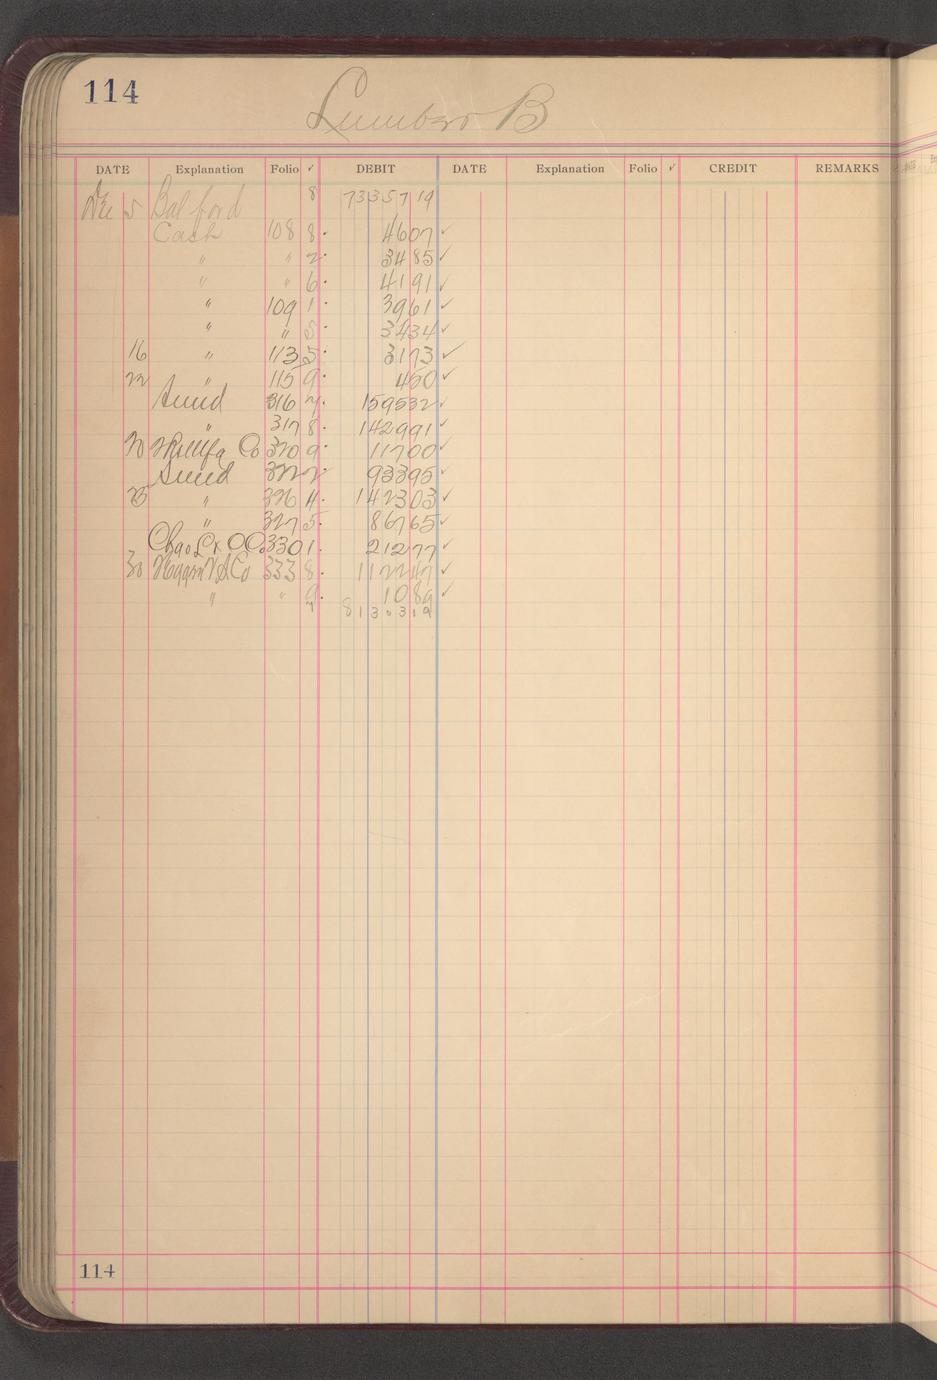 114
Lumber B
DATE Explanation Folio ✓ DEBIT DATE Explanation Folio ✓ CREDIT REMARKS
Dec 5 Bal ford 8 73357 19
Cash 108 8 46 07 ✓
" " 2 34 85 ✓
" " 6 41 91 ✓
" 109 1 39 61 ✓
" " 8 34 34 ✓
16 " 113 5 31 73 ✓
22 " 115 9 4 50 ✓
Sund 316 7 1595 32 ✓
" 317 8 1429 91 ✓
20 Co 320 9 117 00 ✓
Sund 322 2 933 95 ✓
23 " 326 4 1423 03 ✓
" 327 5 867 65 ✓
Chas 330 1 212 77 ✓
30 & Co 333 8 1122 47 ✓
" " 9 10 89 ✓
7 81303 19
114